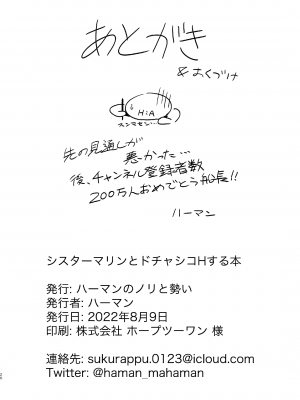 あとがき
&おくづけ
H:A
スンマセン…
先の見通しが
悪かった…
後、チャンネル登録者数
200万人おめでとう船長!!
ハーマン
シスターマリンとドチャシコHする本
発行: ハーマンのノリと勢い
発行者: ハーマン
発行日: 2022年8月9日
印刷: 株式会社 ホープツーワン 様
連絡先: sukurappu.0123@icloud.com
Twitter: @haman_mahaman